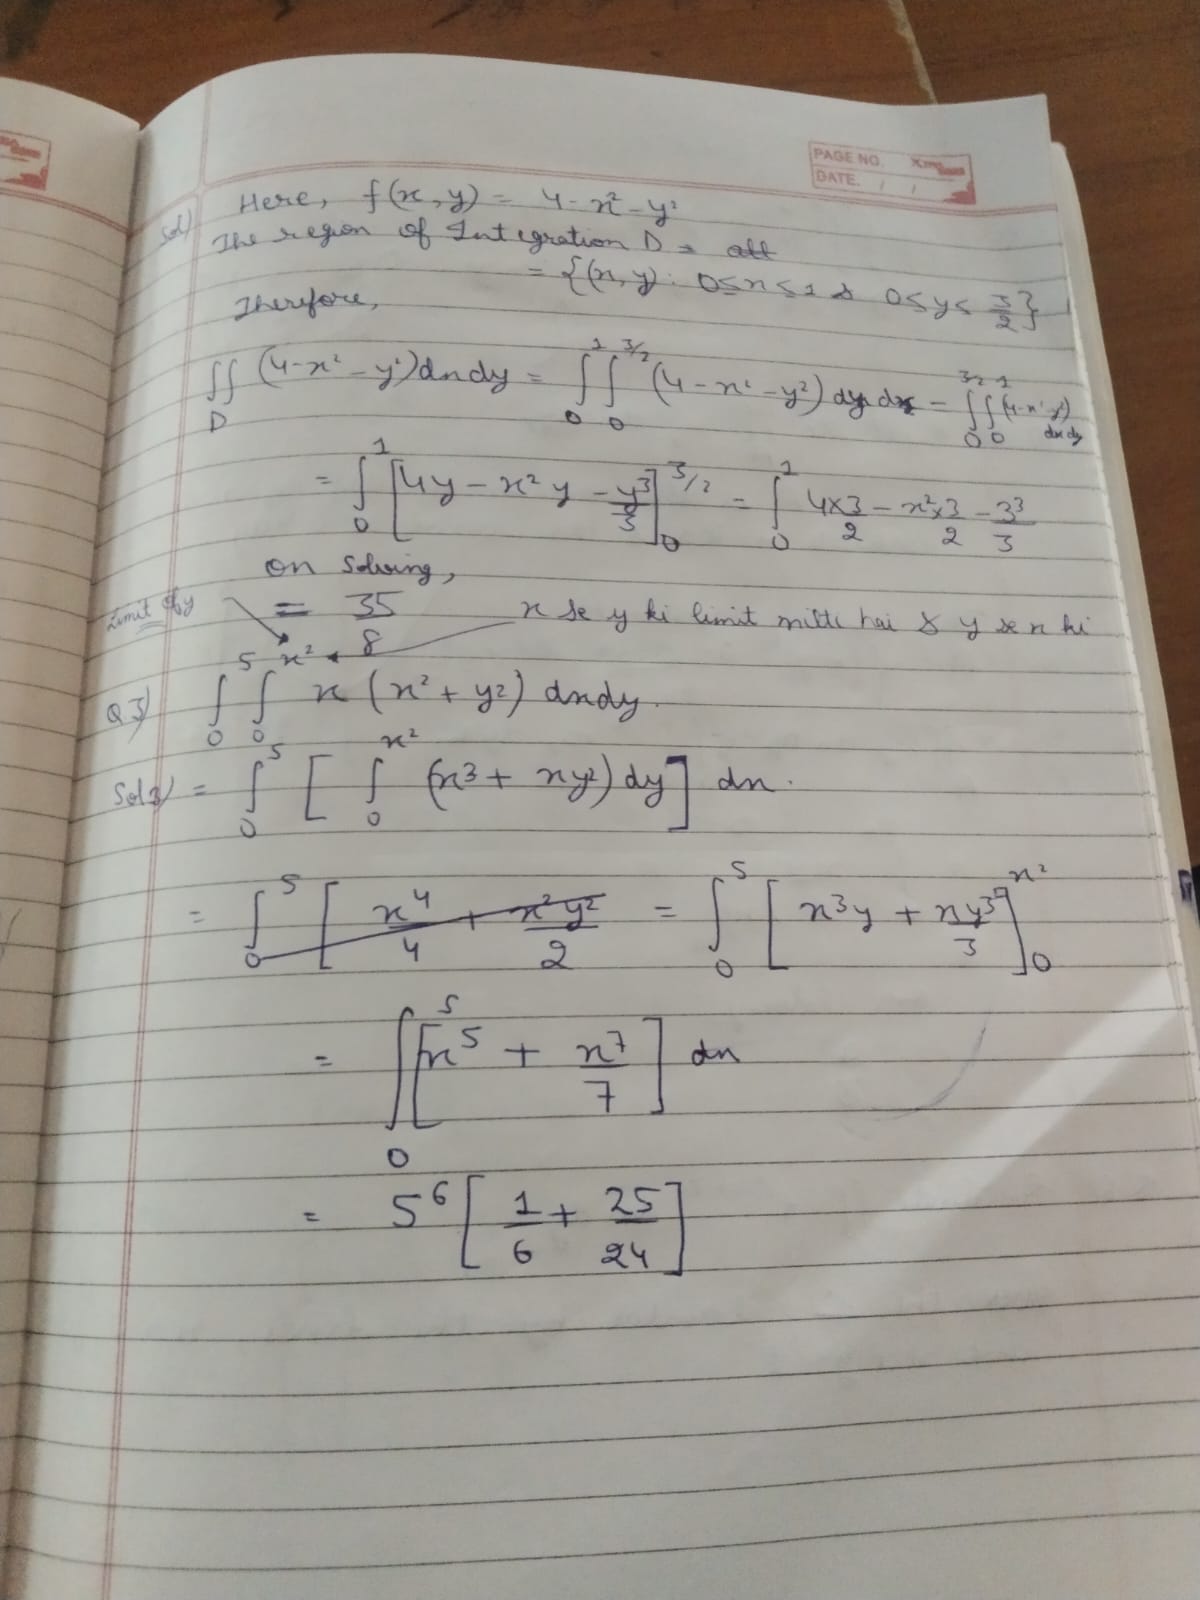 PAGE NO.
DATE. / /
Sol) Here, f(x,y) = 4-x²-y²
The region of Integration D =
= {(x,y): 0≤x≤1 & 0≤y≤ 3/2}
Therefore,
∬_D (4-x²-y²)dxdy = ∫_0^1 ∫_0^{3/2} (4-x²-y²) dy dx = ∫_0^{3/2} ∫_0^1 (4-x²-y²) dx dy
= ∫_0^1 [4y - x²y - y³/3]_0^{3/2} = ∫_0^1 4×3/2 - x²×3/2 - 3³/3
on Solving,
Limit of y = 35/8 x se y ki limit milti hai & y se x ki
Q3) ∫_0^5 ∫_0^{x²} x (x² + y²) dxdy.
Sol3) = ∫_0^5 [ ∫_0^{x²} (x³ + xy²) dy] dx.
= ∫_0^5 [ x⁴/4 + x²y²/2 = ∫_0^5 [ x³y + xy³/3 ]_0^{x²}
= ∫_0^5 [x⁵ + x⁷/7] dx
= 5⁶ [ 1/6 + 25/24 ]